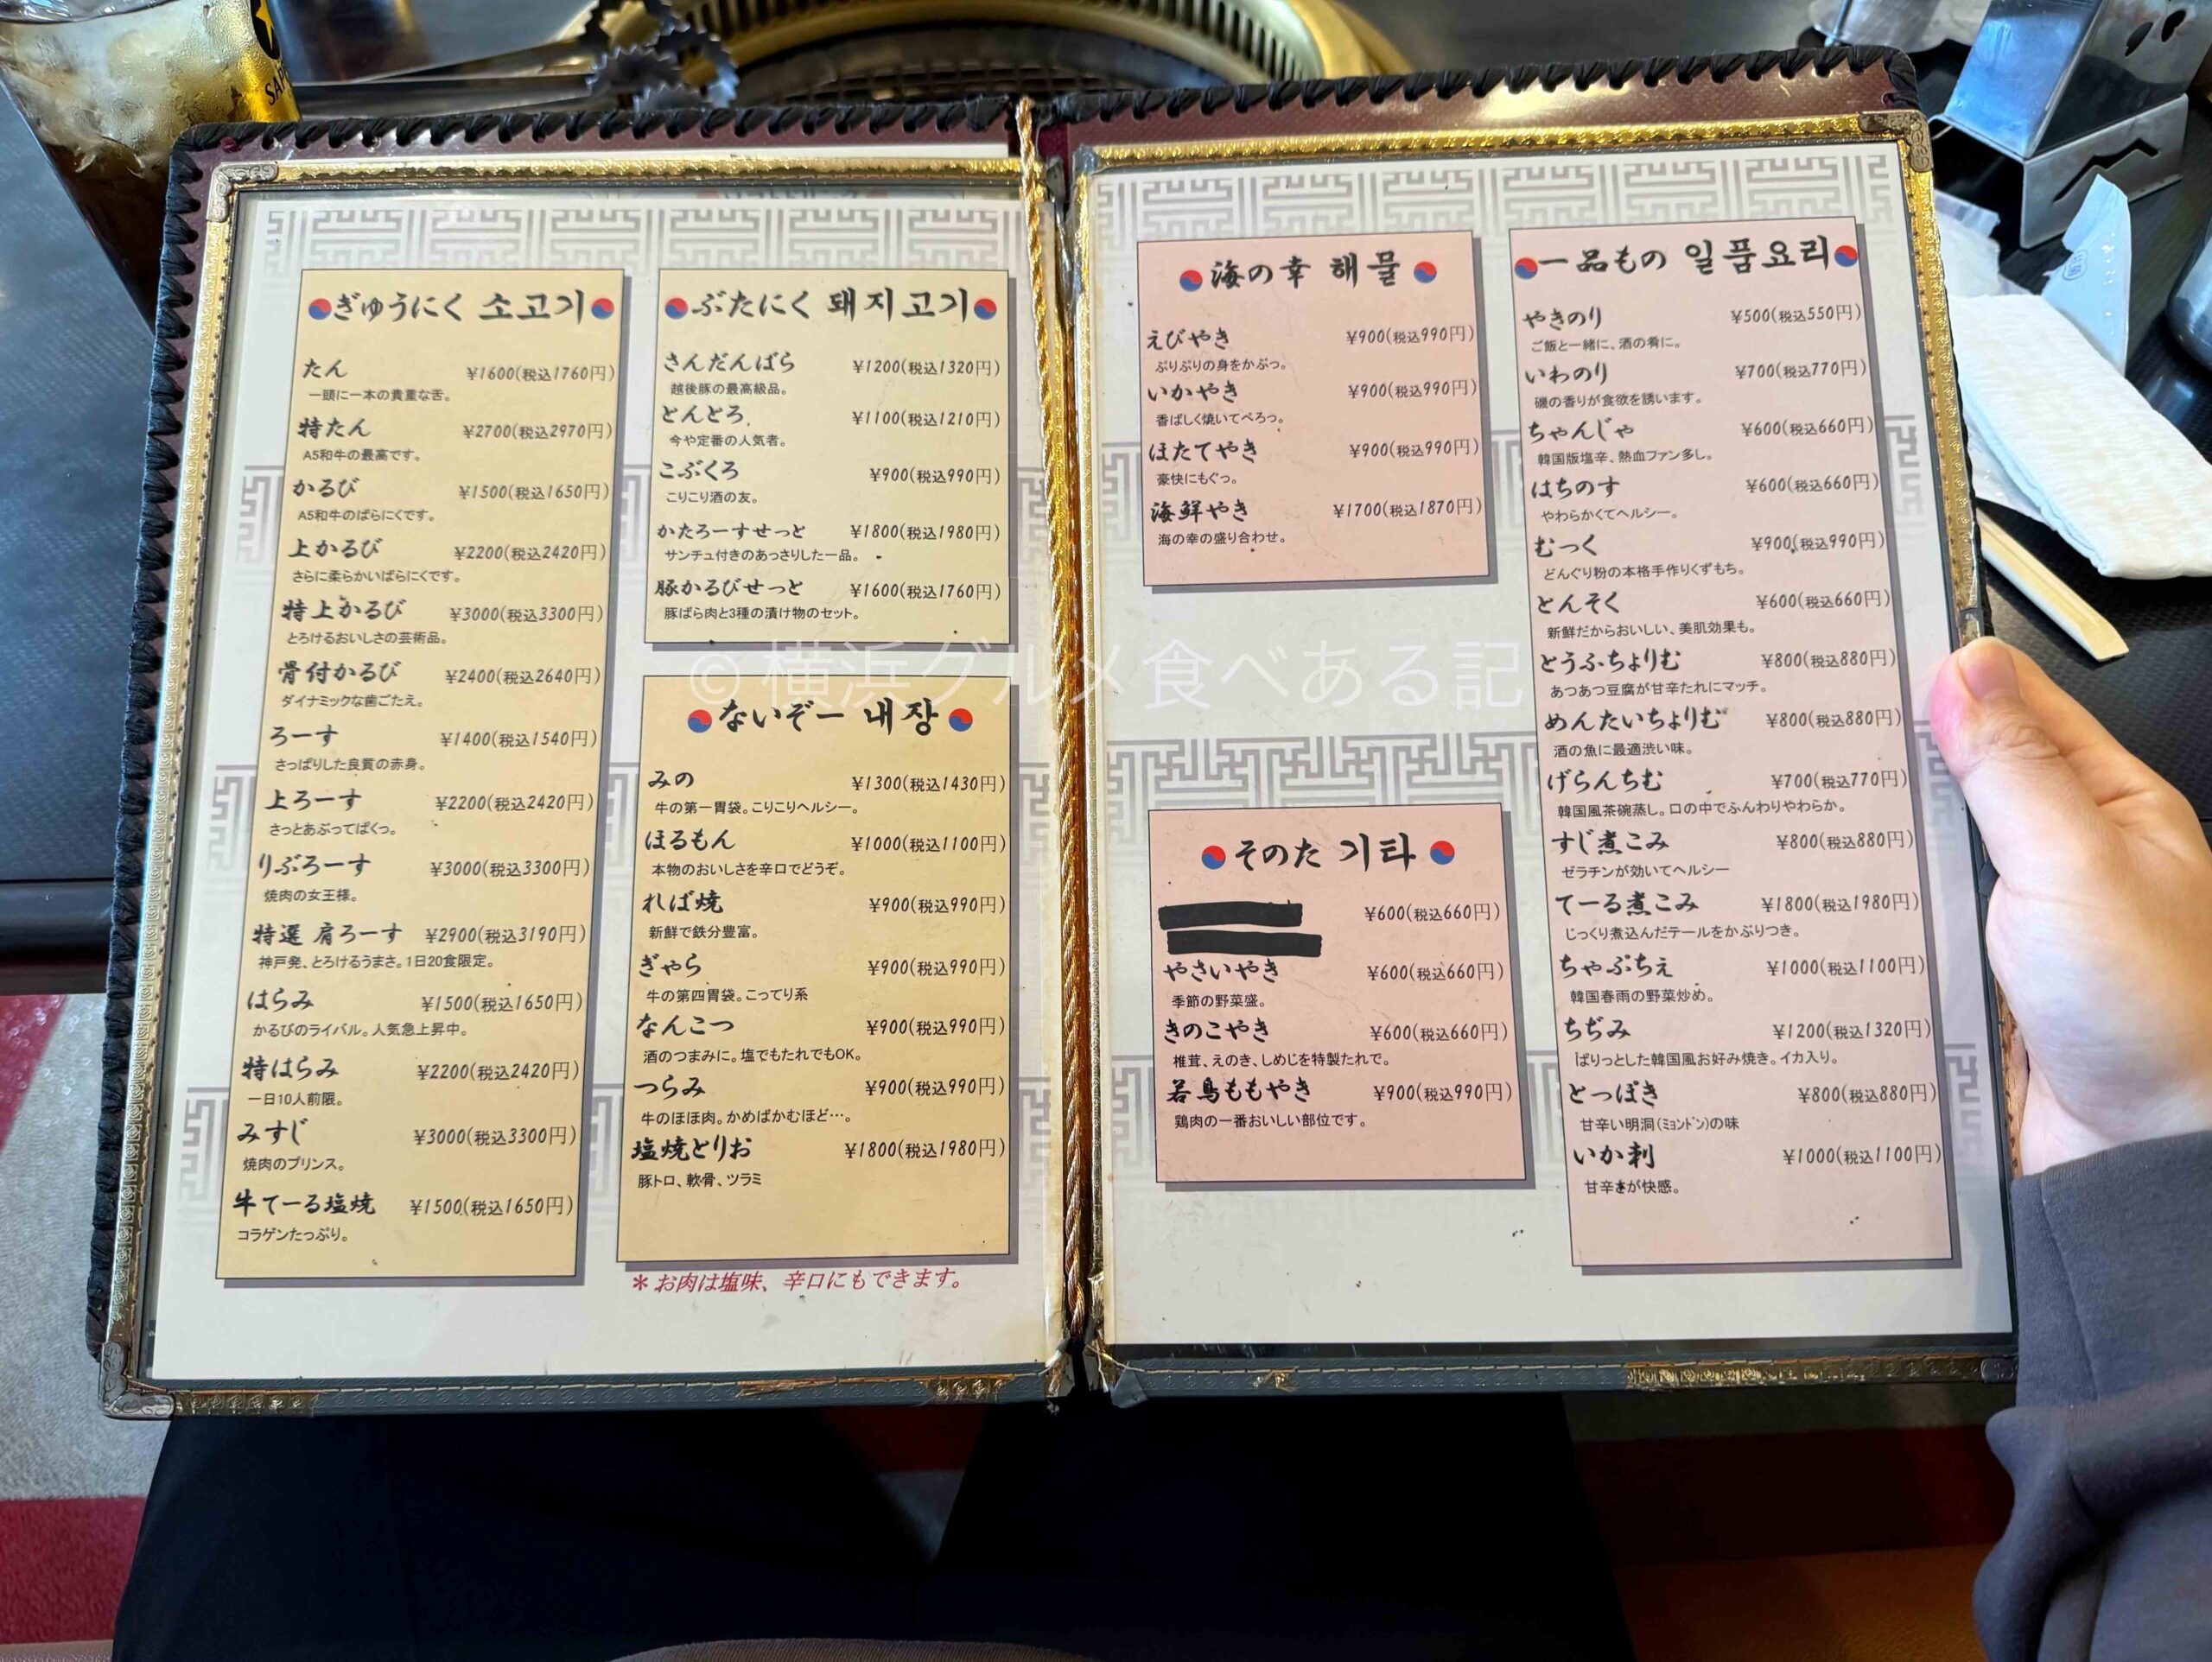 ぎゅうにく 소고기
たん ¥1600(税込1760円)
一頭に一本の貴重な舌。
特たん ¥2700(税込2970円)
A5和牛の最高です。
かるび ¥1500(税込1650円)
A5和牛のばらにくです。
上かるび ¥2200(税込2420円)
さらに柔らかいばらにくです。
特上かるび ¥3000(税込3300円)
とろけるおいしさの芸術品。
骨付かるび ¥2400(税込2640円)
ダイナミックな歯ごたえ。
ろーす ¥1400(税込1540円)
さっぱりした良質の赤身。
上ろーす ¥2200(税込2420円)
さっとあぶってぱくっ。
りぶろーす ¥3000(税込3300円)
焼肉の女王様。
特選 肩ろーす ¥2900(税込3190円)
神戸発、とろけるうまさ。1日20食限定。
はらみ ¥1500(税込1650円)
かるびのライバル。人気急上昇中。
特はらみ ¥2200(税込2420円)
一日10人前限。
みすじ ¥3000(税込3300円)
焼肉のプリンス。
牛てーる塩焼 ¥1500(税込1650円)
コラゲンたっぷり。
ぶたにく 돼지고기
さんだんばら ¥1200(税込1320円)
越後豚の最高級品。
とんとろ ¥1100(税込1210円)
今や定番の人気者。
こぶくろ ¥900(税込990円)
こりこり酒の友。
かたろーすせっと ¥1800(税込1980円)
サンチュ付きのあっさりした一品。
豚かるびせっと ¥1600(税込1760円)
豚ばら肉と3種の漬け物のセット。
ないぞー 내장
みの ¥1300(税込1430円)
牛の第一胃袋。こりこりヘルシー。
ほるもん ¥1000(税込1100円)
本物のおいしさを辛口でどうぞ。
ればー焼 ¥900(税込990円)
新鮮で鉄分豊富。
ぎゃら ¥900(税込990円)
牛の第四胃袋。こってり系
なんこつ ¥900(税込990円)
酒のつまみに。塩でもたれでもOK。
つらみ ¥900(税込990円)
牛のほほ肉。かめばかむほど…。
塩焼とりお ¥1800(税込1980円)
豚トロ、軟骨、ツラミ
*お肉は塩味、辛口にもできます。
海の幸 해물
えびやき ¥900(税込990円)
ぷりぷりの身をかぶっ。
いかやき ¥900(税込990円)
香ばしく焼いてぺろっ。
ほたてやき ¥900(税込990円)
豪快にもぐっ。
海鮮やき ¥1700(税込1870円)
海の幸の盛り合わせ。
そのた 기타
¥600(税込660円)
やさいやき ¥600(税込660円)
季節の野菜盛。
きのこやき ¥600(税込660円)
椎茸、えのき、しめじを特製たれで。
若鳥ももやき ¥900(税込990円)
鶏肉の一番おいしい部位です。
一品もの 일품요리
やきのり ¥500(税込550円)
ご飯と一緒に、酒の肴に。
いわのり ¥700(税込770円)
磯の香りが食欲を誘います。
ちゃんじゃ ¥600(税込660円)
韓国版塩辛、熱血ファン多し。
はちのす ¥600(税込660円)
やわらかくてヘルシー。
むっく ¥900(税込990円)
どんぐり粉の本格手作りくずもち。
とんそく ¥600(税込660円)
新鮮だからおいしい、美肌効果も。
とうふちょりむ ¥800(税込880円)
あつあつ豆腐が甘辛たれにマッチ。
めんたいちょりむ ¥800(税込880円)
酒の魚に最適渋い味。
げらんちむ ¥700(税込770円)
韓国風茶碗蒸し。口の中でふんわりやわらか。
すじ煮こみ ¥800(税込880円)
ゼラチンが効いてヘルシー
てーる煮こみ ¥1800(税込1980円)
じっくり煮込んだテールをかぶりつき。
ちゃぷちぇ ¥1000(税込1100円)
韓国春雨の野菜炒め。
ちぢみ ¥1200(税込1320円)
ぱりっとした韓国風お好み焼き。イカ入り。
とっぽき ¥800(税込880円)
甘辛い明洞(ミョンドン)の味
いか刺 ¥1000(税込1100円)
甘辛さが快感。
© 横浜グルメ食べある記